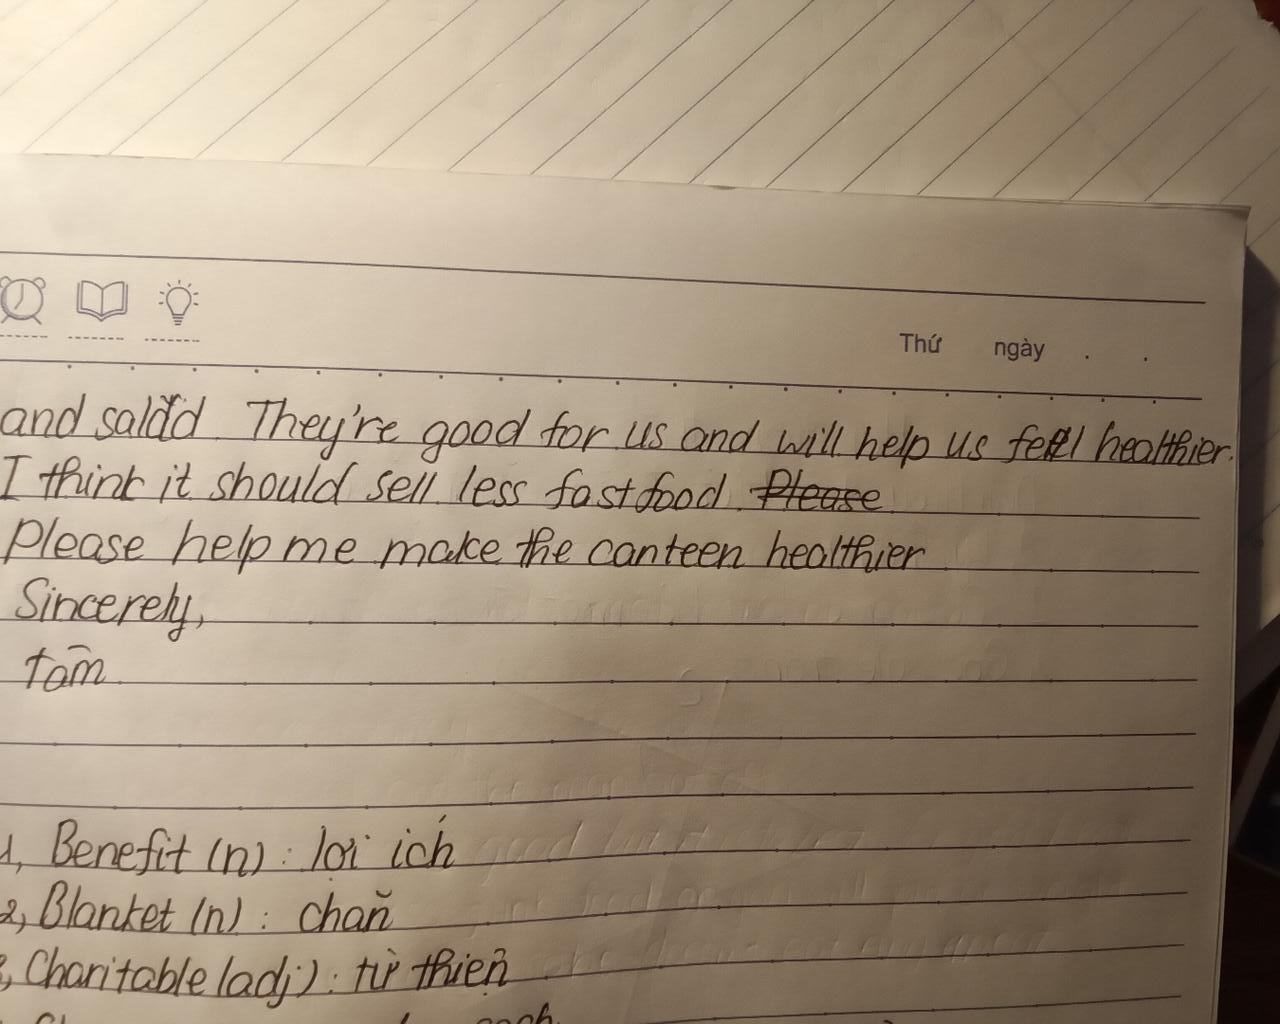 Thứ ngày . .
and salad. They're good for us and will help us feel healthier.
I think it should sell less fastfood. Please
Please help me make the canteen healthier
Sincerely,
Tâm
1, Benefit (n): lợi ích
2, Blanket (n): chăn
3, Charitable (adj): từ thiện